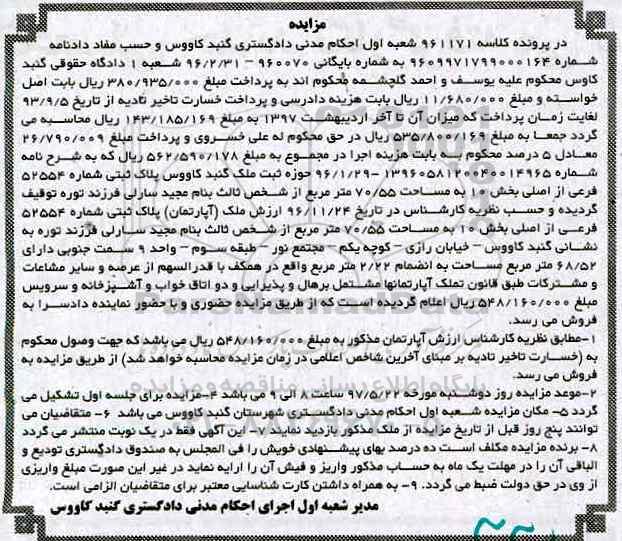 مزایده
در پرونده کلاسه ۹۶۱۱۷۱ شعبه اول احکام مدنی دادگستری گنبد کاووس و حسب مفاد دادنامه
شماره ۹۶۰۹۹۷۱۷۹۹۰۰۰۱۶۴ به شماره بایگانی ۹۶۰۰۷۰ – ۹۶/۲/۳۱ شعبه ۱ دادگاه حقوقی گنبد
کاوس محکوم علیه یوسف و احمد گلچشمه محکوم اند به پرداخت مبلغ ۳۸۰/۹۳۵/۰۰۰ ریال بابت اصل
خواسته و مبلغ ۱۱/۶۸۰/۰۰۰ ریال بابت هزینه دادرسی و پرداخت خسارت تاخیر تادیه از تاریخ ۹۳/۹/۵
لغایت زمان پرداخت که میزان آن تا آخر اردیبهشت ۱۳۹۷ به مبلغ ۱۴۳/۱۸۵/۱۶۹ ریال محاسبه می
گردد جمعا به مبلغ ۵۳۵/۸۰۰/۱۶۹ ریال در حق محکوم له علی خسروی و پرداخت مبلغ ۲۶/۷۹۰/۰۰۹
معادل ۵ درصد محکوم به بابت هزینه اجرا در مجموع به مبلغ ۵۶۲/۵۹۰/۱۷۸ ریال که به شرح نامه
شماره ۱۳۹۶۰۵۸۱۲۰۰۴۰۰۱۴۹۶۵ -۹۶/۱/۲۹ حوزه ثبت ملک گنبد کاووس پلاک ثبتی شماره ۵۲۵۵۴
فرعی از اصلی بخش ۱۰ به مساحت ۷۰/۵۵ متر مربع از شخص ثالث بنام مجید سارلی فرزند توره توقیف
گردیده و حسب نظریه کارشناس در تاریخ ۹۶/۱۱/۲۴ ارزش ملک (آپارتمان) پلاک ثبتی شماره ۵۲۵۵۴
فرعی از اصلی بخش ۱۰ به مساحت ۷۰/۵۵ متر مربع از شخص ثالث بنام مجید سارلی فرزند توره به
نشانی گنبد کاووس – خیابان رازی – کوچه یکم – مجتمع نور – طبقه سوم – واحد ۹ سمت جنوبی دارای
۶۸/۵۲ متر مربع مساحت به انضمام ۲/۲۲ متر مربع واقع در همکف با قدرالسهم از عرصه و سایر مشاعات
و مشترکات طبق قانون تملک آپارتمانها مشتمل برهال و پذیرایی و دو اتاق خواب و آشپزخانه و سرویس
مبلغ ۵۴۸/۱۶۰/۰۰۰ ریال اعلام گردیده است که از طریق مزایده حضوری و با حضور نماینده دادسرا به
فروش می رسد.
۱-مطابق نظریه کارشناس ارزش آپارتمان مذکور به مبلغ ۵۴۸/۱۶۰/۰۰۰ ریال می باشد که جهت وصول محکوم
به (خسارت تاخیر تادیه بر مبنای آخرین شاخص اعلامی در زمان مزایده محاسبه خواهد شد) از طریق مزایده به
فروش می رسد.
۲-موعد مزایده روز دوشنبه مورخه ۹۷/۵/۲۲ ساعت ۸ الی ۹ می باشد ۴-مزایده برای جلسه اول تشکیل می
گردد ۵- مکان مزایده شعبه اول احکام مدنی دادگستری شهرستان گنبد کاووس می باشد ۶- متقاضیان می
توانند پنج روز قبل از تاریخ مزایده از ملک مذکور بازدید نمایند ۷- این آگهی فقط در یک نوبت منتشر می گردد
۸- برنده مزایده مکلف است ده درصد بهای پیشنهادی خویش را فی المجلس به صندوق دادگستری تودیع و
الباقی آن را در مهلت یک ماه به حساب مذکور واریز و فیش آن را ارایه نماید در غیر این صورت مبلغ واریزی
از وی در حق دولت ضبط می گردد. ۹- به همراه داشتن کارت شناسایی معتبر برای متقاضیان الزامی است.
مدیر شعبه اول اجرای احکام مدنی دادگستری گنبد کاووس